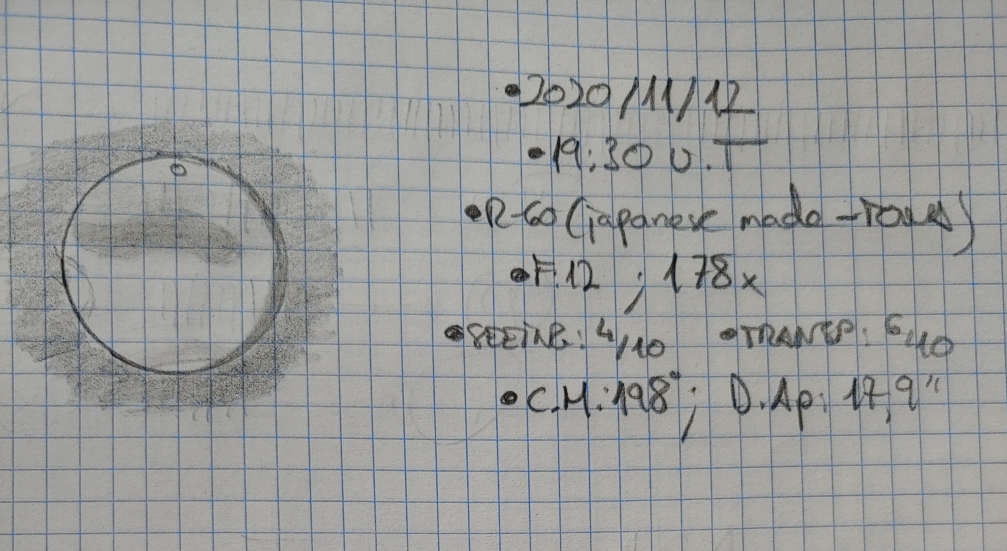 •2020/11/12
•19:30 U.T
•R-60 (japanese made - Towa)
•F.12 ; 178x
•SEEING: 4/10 •TRANSP: 6/10
•C.M.: 198°; D.Ap: 17,9"